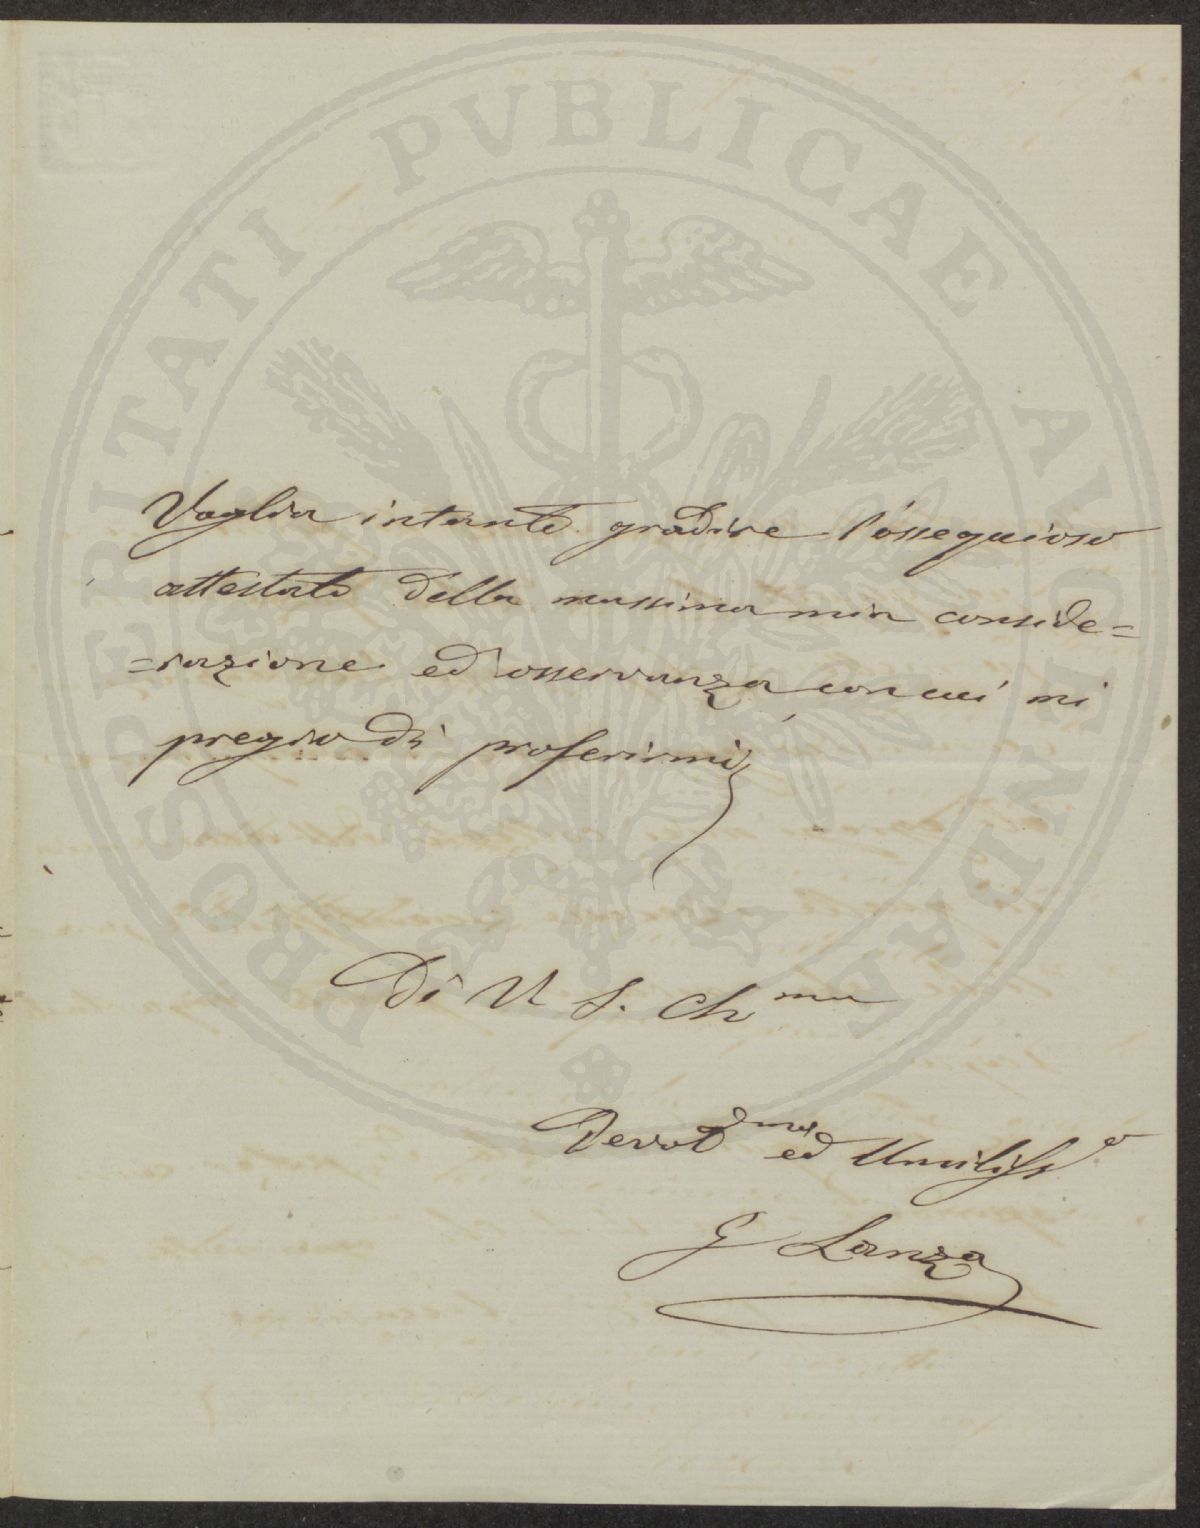 PROSPERITATI PVBLICAE AVGENDAE
Voglia intanto gradire l'ossequioso
attestato della massima mia conside=
=razione ed osservanza con cui mi
pregio di proferirmi
Di V S. Ch^ma
Devot^mo ed Umiliss^o
G Lanza